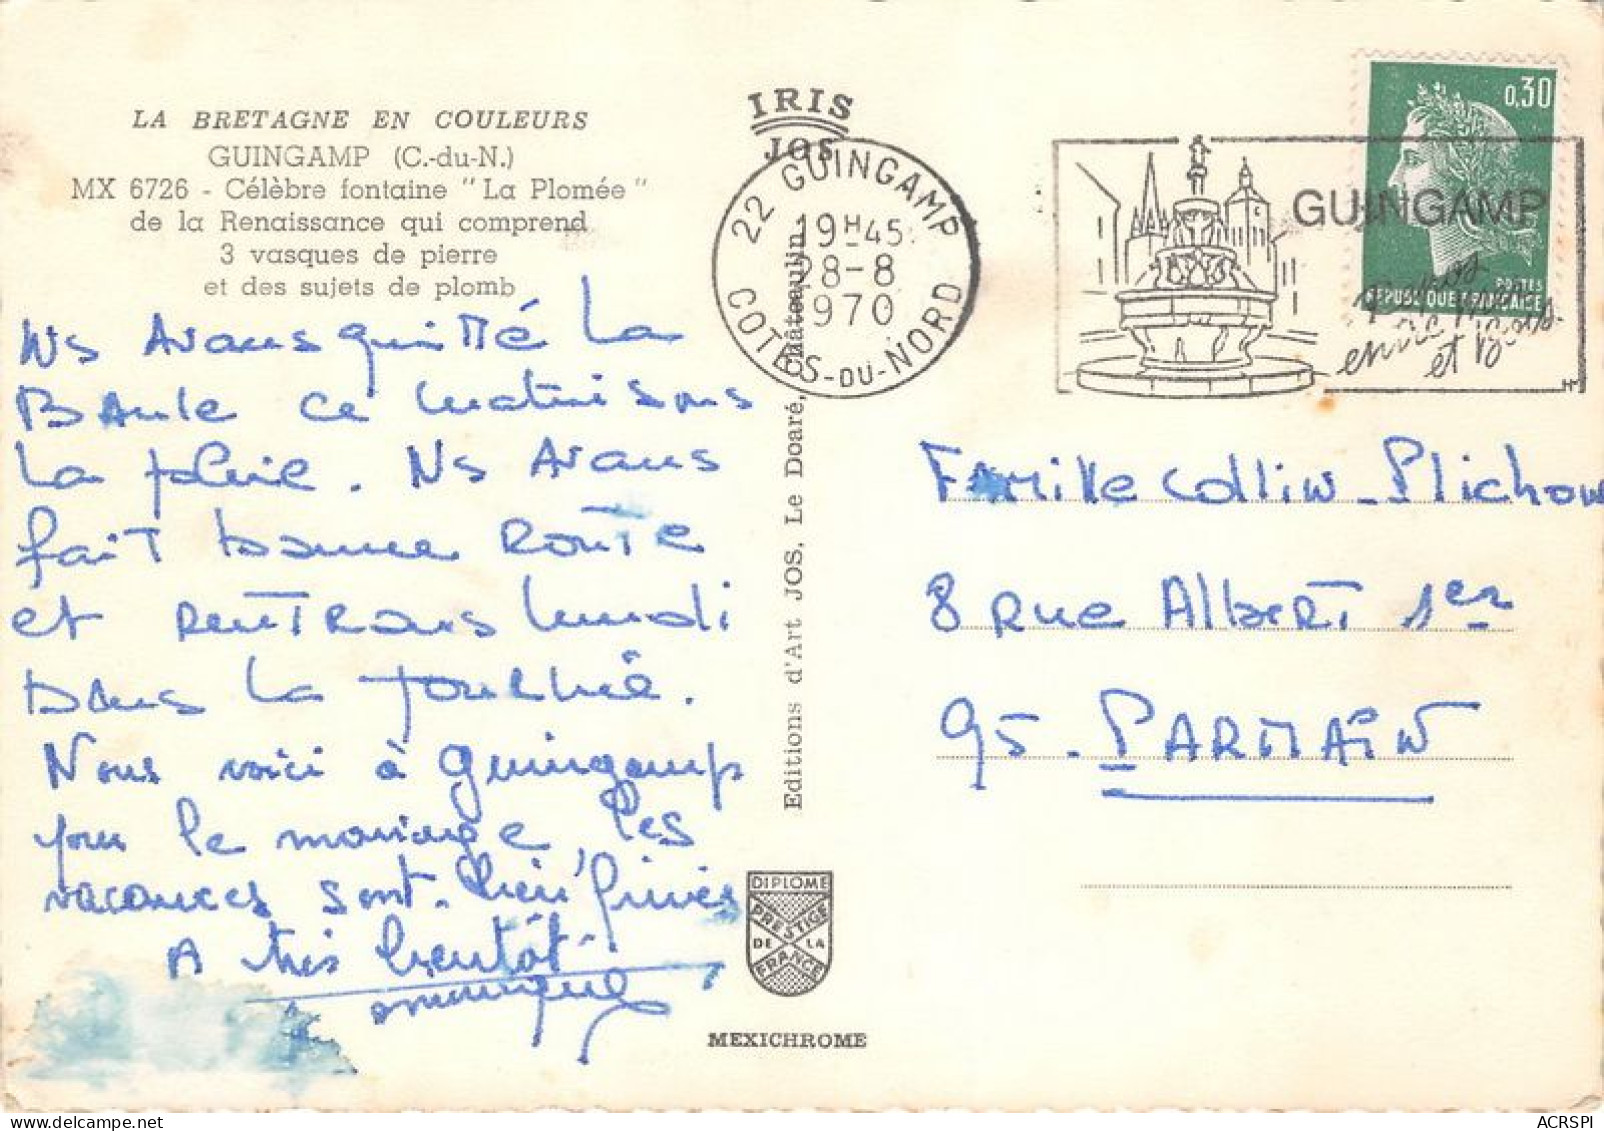 LA BRETAGNE EN COULEURS
GUINGAMP (C.-du-N.)
MX 6726 - Célèbre fontaine "La Plomée"
de la Renaissance qui comprend
3 vasques de pierre
et des sujets de plomb
Ns Avons quitté La
BAule ce matin sous
La pluie. Ns Avons
fait bonne Route
et RentRons lundi
dans La Journée.
Nous voici à Guingamp
pour le mariage, les
vacances sont bien finies
A très bientôt.
IRIS
JOS
22 GUINGAMP
19H45
28-8
1970
COTES-DU-NORD
GUINGAMP
et
0,30
POSTES
REPUBLIQUE FRANCAISE
Editions d'Art JOS. Le Doaré, Châteaulin.
FAMille Collin-Plichon
8 Rue AlbeRT 1er
95-PARMAiN
DIPLOME
PRESTIGE
DE LA
FRANCE
MEXICHROME
www.delcampe.net
ACRSPI